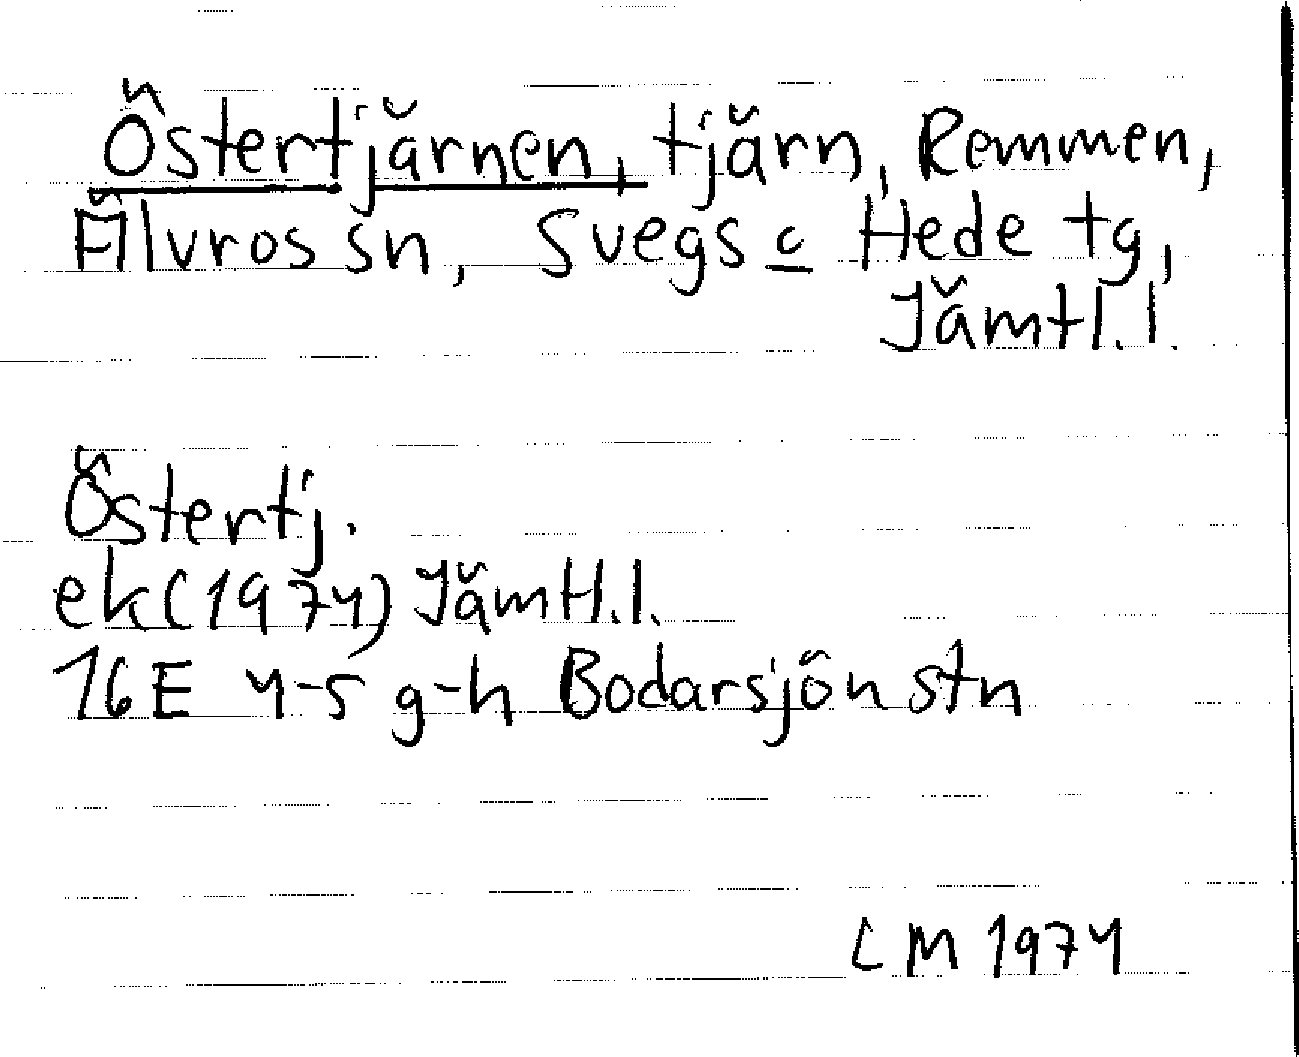 Östertjärnen, tjärn, Remmen,
Älvros sn, Svegs o Hede tg,
Jämtl. l.
Östertj.
ek (1974) Jämtl. l.
16E 4-5 g-h Bodarsjön stn
LM 1974